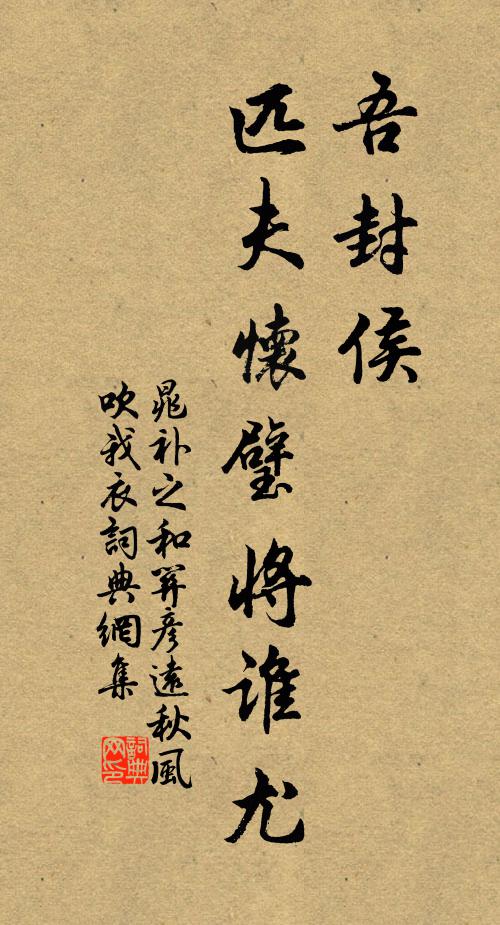 吾封侯
匹夫懷璧將誰尤
晁补之和關彦遠秋風
吹我衣詞典網集
詞典
网印